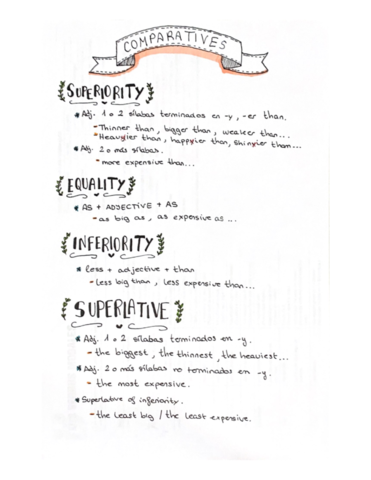 COMPARATIVES
SUPERIORITY
Adj. 1 o 2 sílabas terminados en -y, -er than.
- Thinner than, bigger than, weaker than...
- Heavyier than, happyier than, shinyier than...
Adj. 2 o más sílabas.
- more expensive than...
EQUALITY
AS + ADJECTIVE + AS
- as big as, as expensive as ...
INFERIORITY
less + adjective + than
- Less big than, less expensive than...
SUPERLATIVE
Adj. 1 o 2 sílabas terminados en -y.
- the biggest, the thinnest, the heaviest...
Adj. 2 o más sílabas no terminados en -y.
- the most expensive.
Superlative of inferiority.
- the least big / the least expensive.